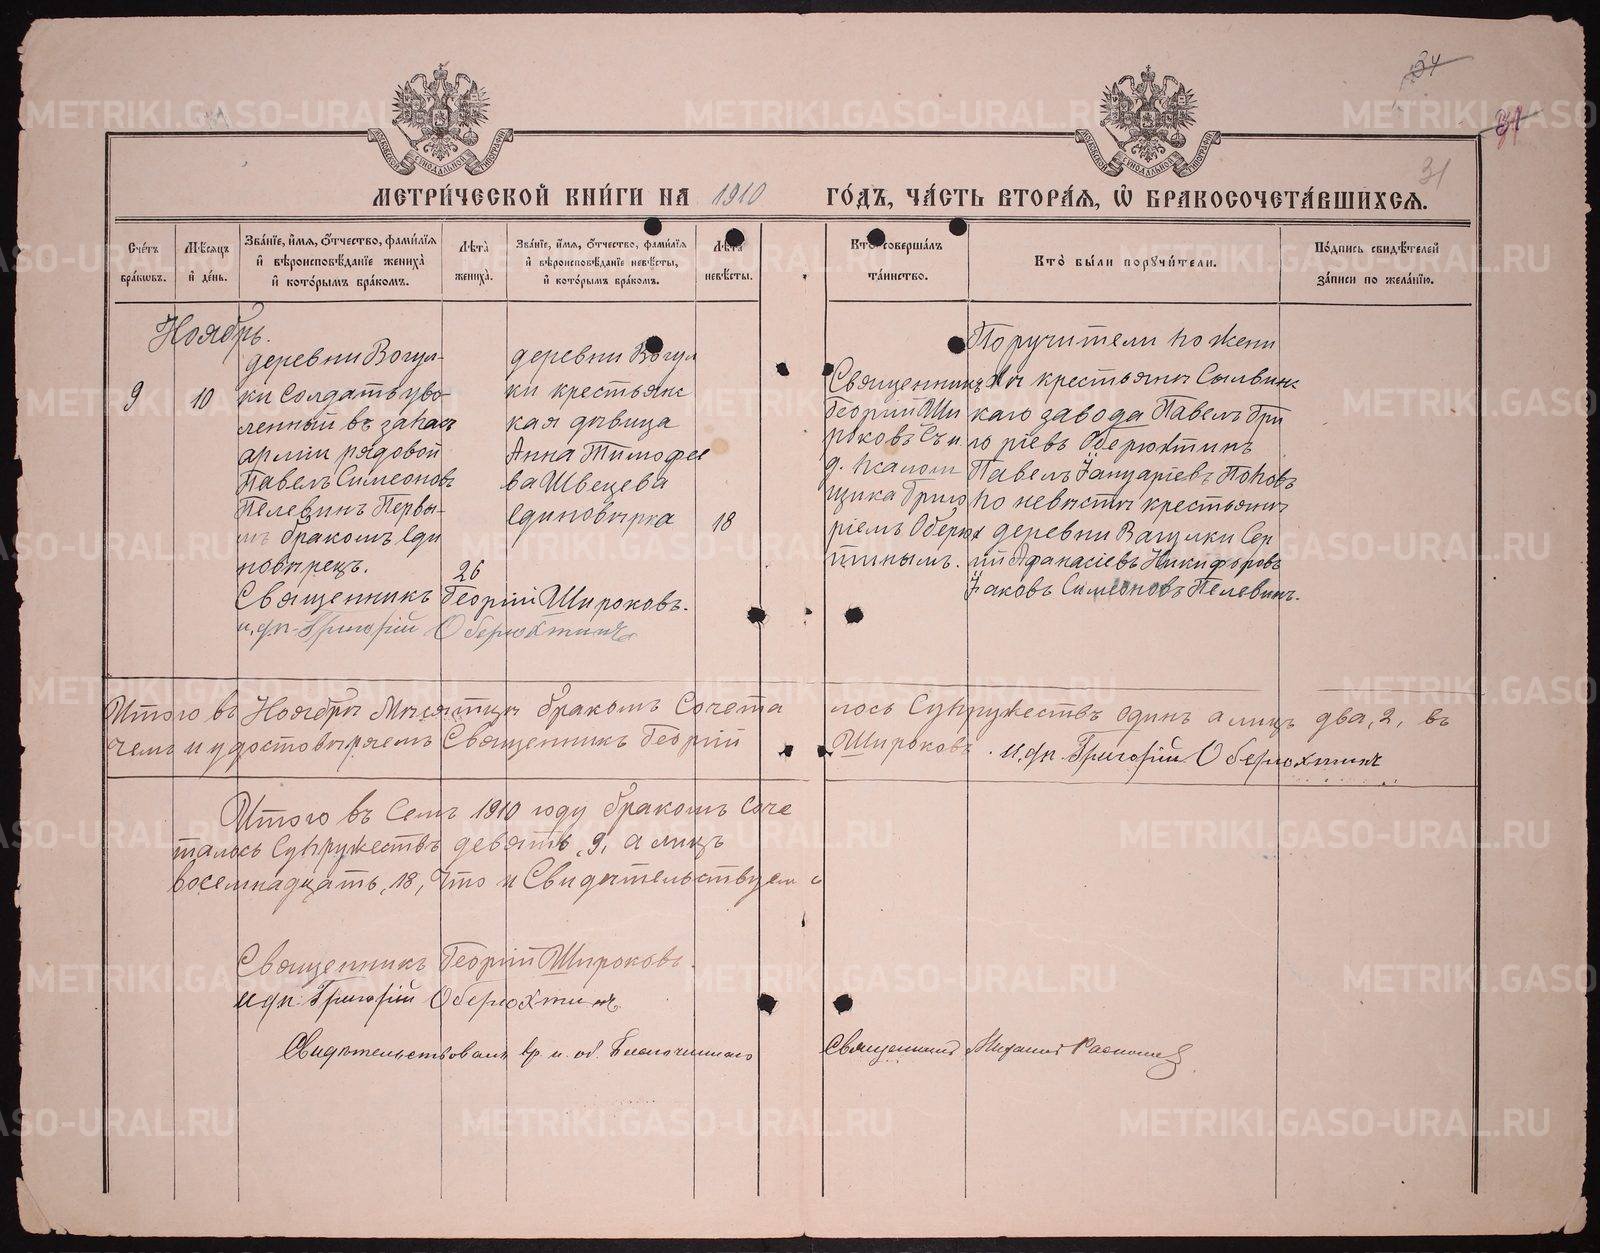 34
31
31
МОСКОВСКОЙ СѴНОДАЛЬНОЙ ТИПОГРАФІИ
МОСКОВСКОЙ СѴНОДАЛЬНОЙ ТИПОГРАФІИ
МЕТРИ́ЧЕСКОЙ КНИ́ГИ НА 1910 ГО́ДЪ, ЧА́СТЬ ВТОРА́Я, Ѡ БРАКОСОЧЕТА́ВШИХСЯ.
Сче́тъ
бра́кѡвъ.
Мѣ́сѧцъ
и҆ де́нь.
Зва́нїе, и҆́мѧ, Ѻтчество, фамѝлїѧ
и҆ вѣроисповѣданїе жениха̀
и҆ кото́рымъ бра́комъ.
Лѣта̀
жениха̀.
Зва́нїе, и҆́мѧ, Ѻтчество, фамѝлїѧ
и҆ вѣроисповѣданїе невѣ́сты,
и҆ кото́рымъ бра́комъ.
Лѣта̀
невѣ́сты.
Кто̀ соверша́лъ
та́инство.
Кто̀ бы́ли порꙋчи́тели.
По́дпись свидѣ́телей
за́писи по жела́нїю.
Ноябрь.
9
10
деревни Вогул-
ки Солдатъ уво-
ленный въ запас
арміи рядовой
Павелъ Симеоновъ
Пелевинъ Первы-
мъ бракомъ еди
новѣрецъ.
26
деревни Вогул
ки крестьянс
кая дѣвица
Анна Тимофее
ва Швецева
единовѣрка
18
Священникъ
Георгій Ши
роковъ Съ и.
д. псалом
щика Григо
ріемъ Оберюх
тинымъ.
Поручители по жени
хѣ крестьяне Сылвинс
каго завода Павелъ Гри
горіевъ Оберюхтинъ
Павелъ Іануаріевъ Поповъ
по невѣстѣ крестьяне
деревни Вагулки Сер
гій Афанасіевъ Никифоровъ
Іаковъ Симеоновъ Пелевинъ.
Священникъ Георгій Широковъ.
и, дп. Григорій Оберюхтинъ
Итого въ Ноябрѣ Мѣсяцѣ бракомъ Сочета лось Супружествъ один а лицъ два, 2, въ
чемъ и удостовѣряемъ Священникъ Георгій Широковъ. и. дп. Григорій Оберюхтинъ
Итого въ Семъ 1910 году бракомъ Соче
талось Супружествъ девять, 9, а лицъ
восемнадцать, 18, Что и Свидѣтельствуемъ
Священникъ Георгій Широковъ.
и дп. Григорій Оберюхтинъ
Свидѣтельствовалъ вр. и. об. Благочиннаго Священникъ Михаилъ
METRIKI.GASO-URAL.RU